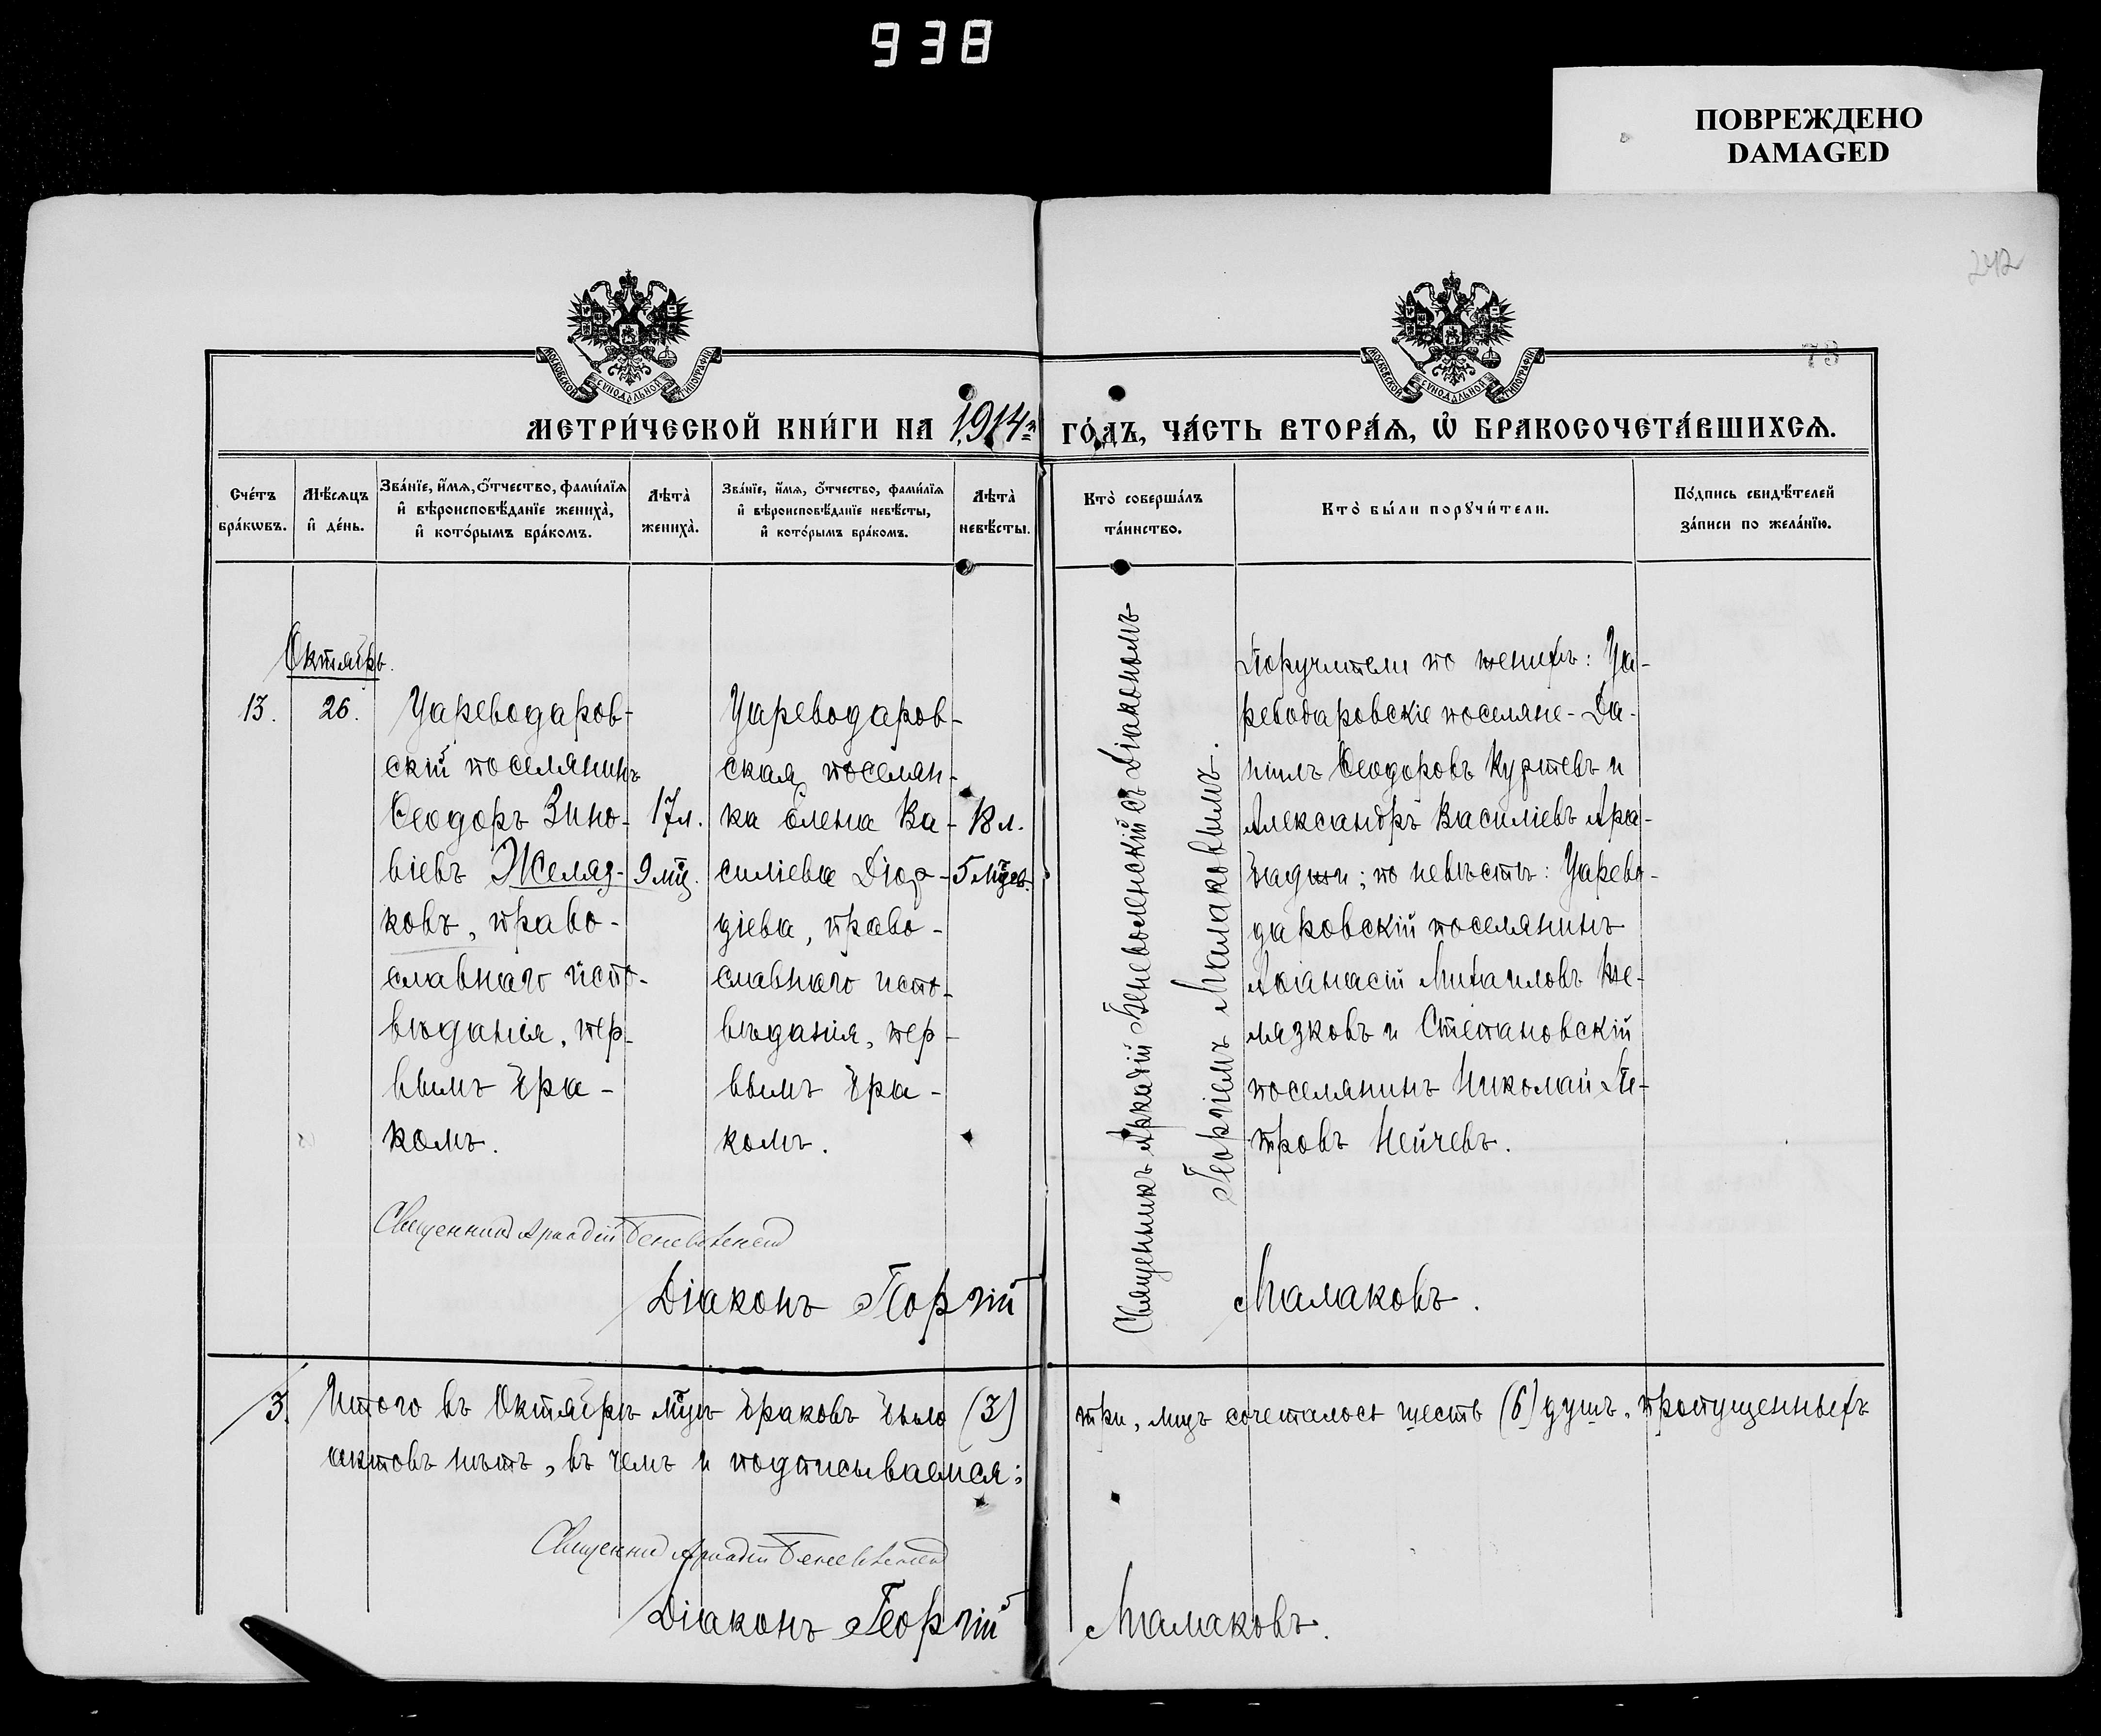 938
ПОВРЕЖДЕНО
DAMAGED
242
73
МОСКОВСКОЙ СѴНОДАЛЬНОЙ ТИПОГРАФІИ
МОСКОВСКОЙ СѴНОДАЛЬНОЙ ТИПОГРАФІИ
МЕТРИ́ЧЕСКОЙ КНИ́ГИ НА 1914й ГО́ДЪ, ЧА́СТЬ ВТОРА́Ѧ, Ѡ҆ БРАКОСОЧЕТА́ВШИХСѦ.
Сче́тъ
бра́кѡвъ.
Мѣ́сѧцъ
и҆ де́нь.
Зва́нїе, и҆́мѧ, ѻ҆́тчество, фами́лїѧ
и҆ вѣроисповѣ́данїе жениха̀,
и҆ кото́рымъ бра́комъ.
Лѣта̀
жениха̀.
Зва́нїе, и҆́мѧ, ѻ҆́тчество, фами́лїѧ
и҆ вѣроисповѣ́данїе невѣ́сты,
и҆ кото́рымъ бра́комъ.
Лѣта̀
невѣ́сты.
Кто̀ соверша́лъ
та́инство.
Кто̀ бы́ли порꙋчи́тели.
По́дпись свидѣ́телей
за́писи по жела́нїю.
Октябрь.
13.
26.
Цареводаров-
скій поселянинъ
Ѳеодоръ Зино-
віевъ Желяз-
ковъ, право-
славнаго испо-
вѣданія, пер-
вымъ бра-
комъ.
17л.
9 мц.
Цареводаров-
ская поселян-
ка Елена Ва-
силіева Діор-
діева, право-
славнаго испо-
вѣданія, пер-
вымъ бра-
комъ.
18 л.
5 мцев.
Священникъ Аркадій Беневоленскій съ Діакономъ
Георгіемъ Малаковымъ.
Поручители по женихѣ: Ца-
реводаровскіе поселяне - Да-
ніилъ Ѳеодоровъ Куртевъ и
Александръ Василіевъ Ара-
баджи; по невѣстѣ: Царево-
даровскій поселянинъ
Аѳанасій Михаиловъ Же-
лязковъ и Степановскій
поселянинъ Николай Пе-
тровъ Нейчевъ.
Священникъ Аркадій Беневоленскій
Діаконъ Георгій Малаковъ.
3. Итого въ Октябрѣ мцѣ браковъ было (3) три, лицъ сочеталось шесть (6) душъ, пропущенныхъ
актовъ нѣтъ, въ чемъ и подписываемся:
Священникъ Аркадій Беневоленскій
Діаконъ Георгій Малаковъ.